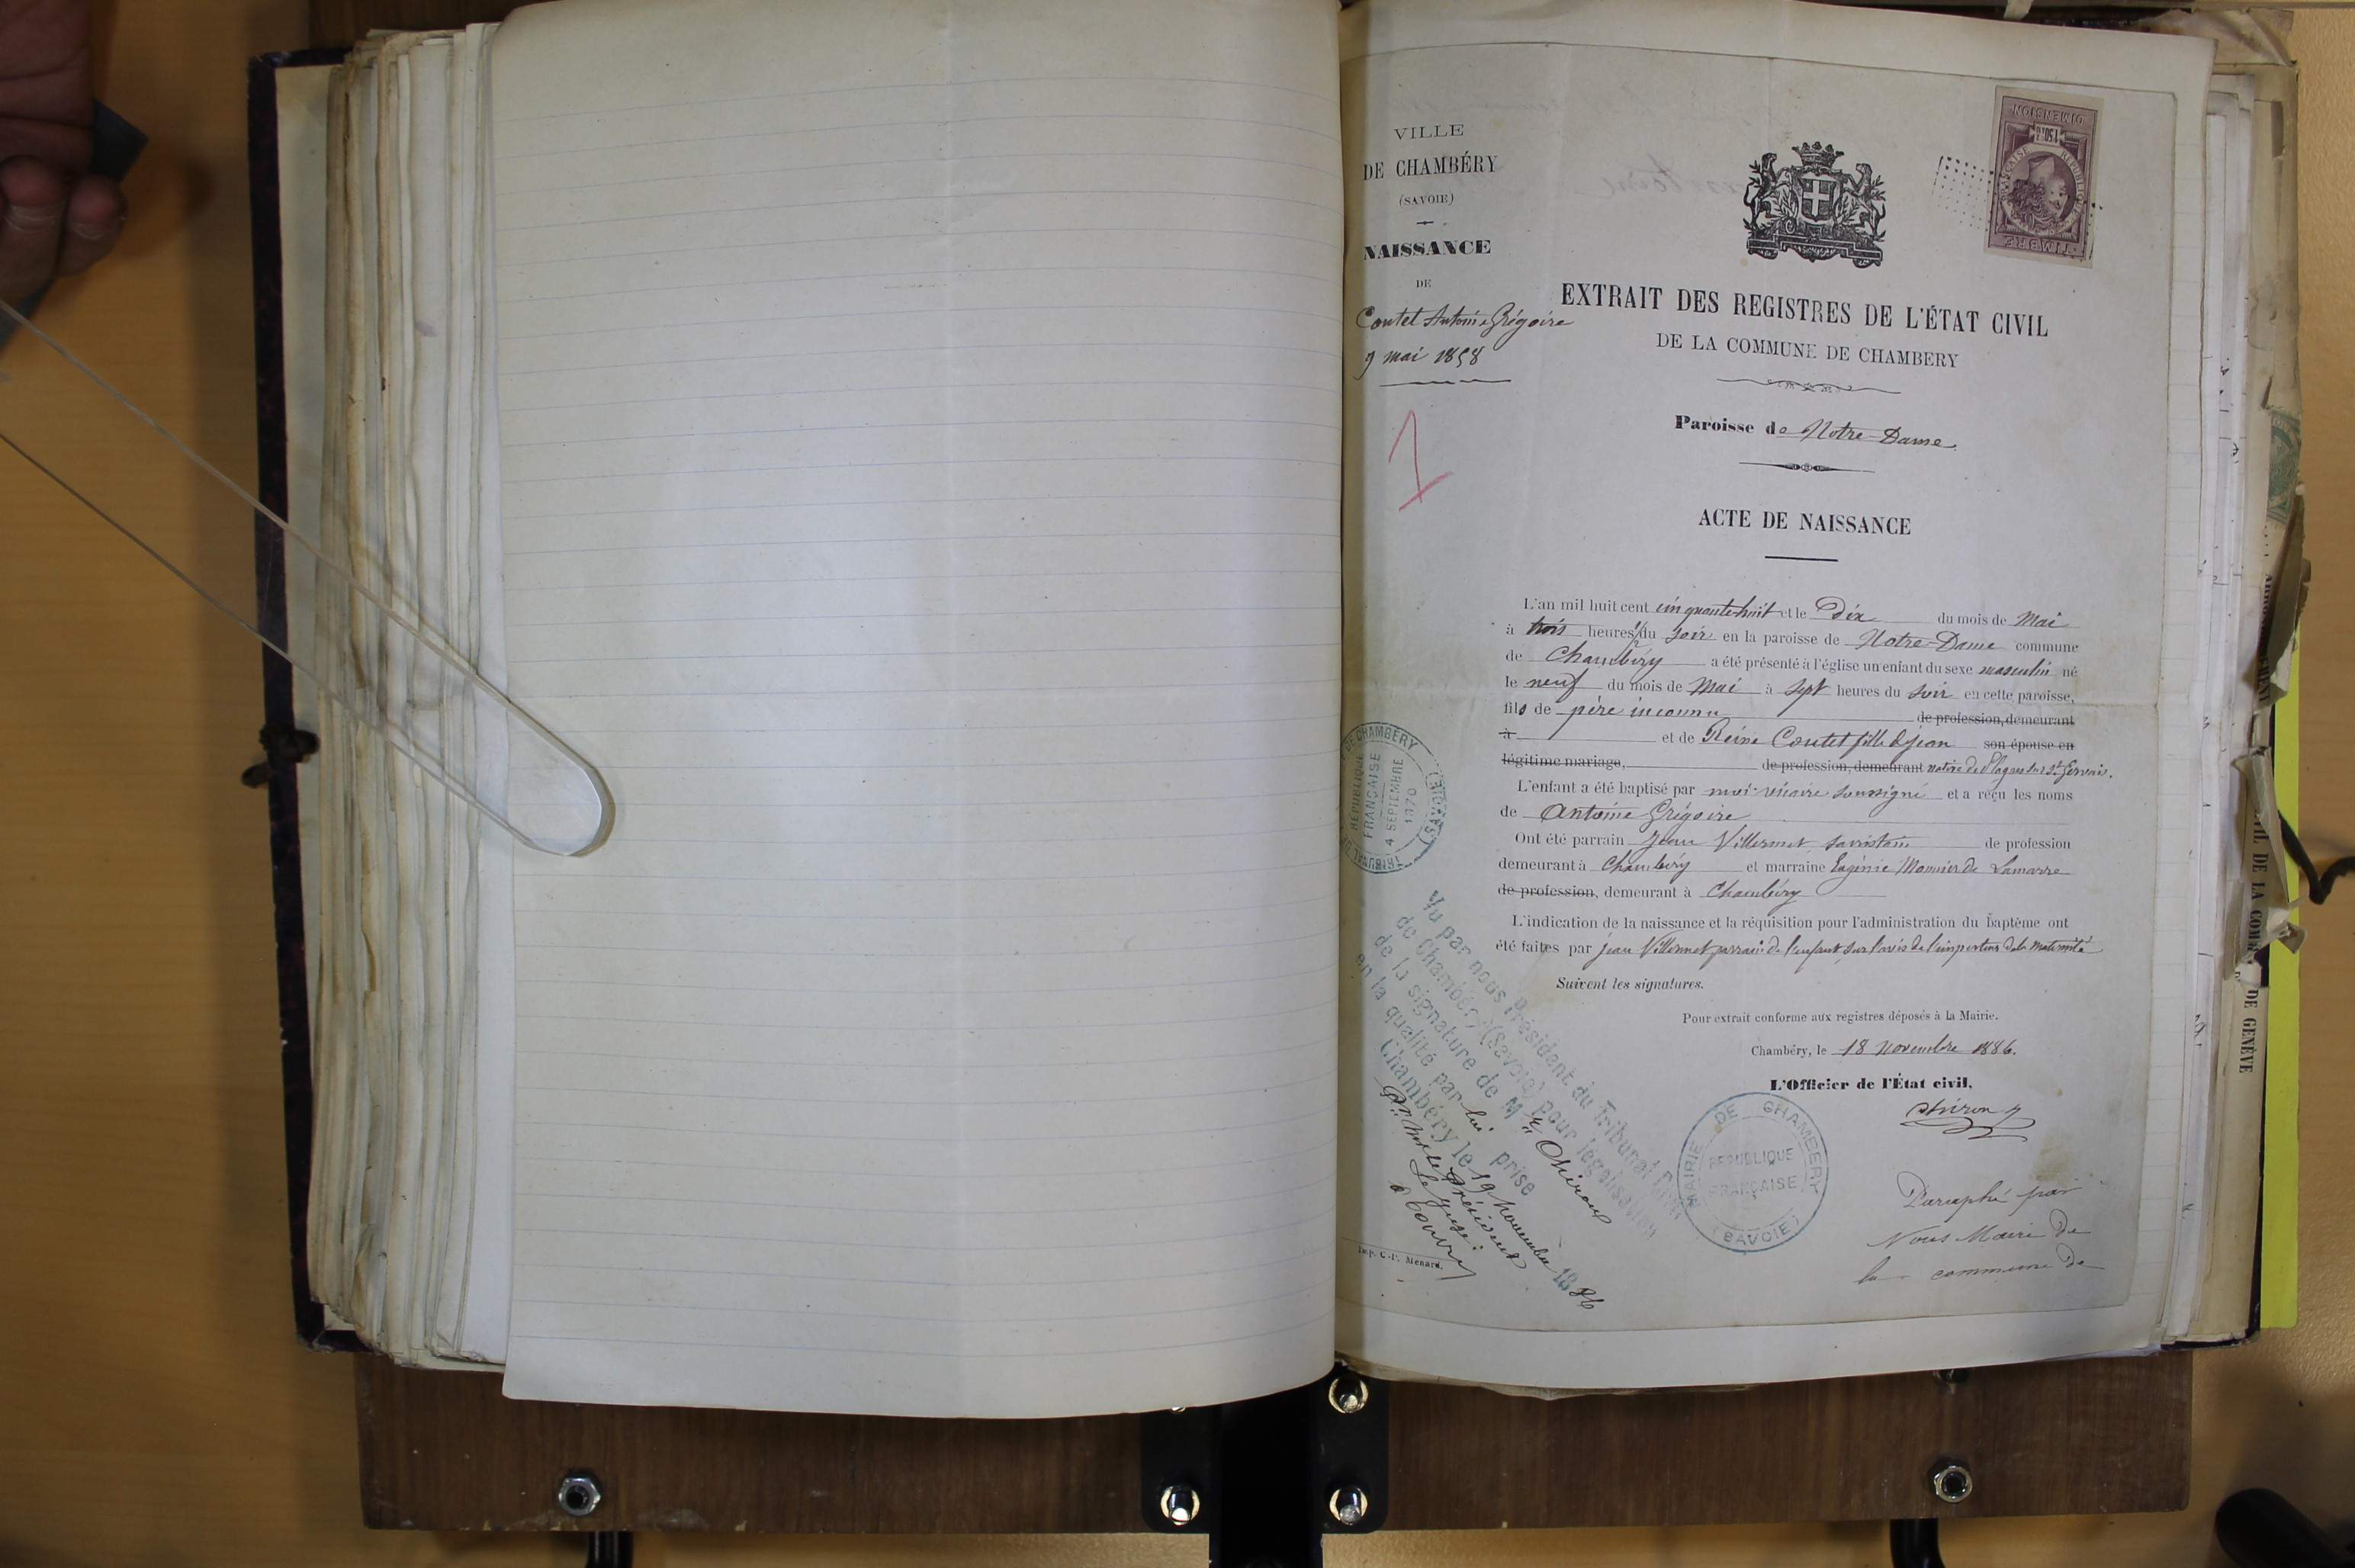 VILLE
DE CHAMBÉRY
(SAVOIE)
NAISSANCE
DE
Coutet Antoine Grégoire
9 mai 1858
1
DIMENSION
TIMBRE
EXTRAIT DES REGISTRES DE L'ÉTAT CIVIL
DE LA COMMUNE DE CHAMBERY
Paroisse de Notre-Dame
ACTE DE NAISSANCE
L'an mil huit cent cinquante huit et le Dix du mois de Mai
à trois heures 1/2 du soir en la paroisse de Notre-Dame commune
de Chambéry a été présenté à l'église un enfant du sexe masculin né
le neuf du mois de Mai à sept heures du soir en cette paroisse,
fils de père inconnu de profession, demeurant
à et de Reine Coutet fille de jean son épouse en
légitime mariage, de profession, demeurant native de St Gervais.
L'enfant a été baptisé par moi vicaire soussigné et a reçu les noms
de Antoine Grégoire
Ont été parrain Jean Villermet sacristain de profession
demeurant à Chambéry et marraine Eugénie Monnier de Lamarre
de profession, demeurant à Chambéry
L'indication de la naissance et la réquisition pour l'administration du baptème ont
été faites par jean Villermet parrain de l'enfant, sur l'avis de l'inspecteur de la maternité
Suivent les signatures.
Pour extrait conforme aux registres déposés à la Mairie.
Chambéry, le 18 novembre 1886.
L'Officier de l'État civil,
Chiron
MAIRIE DE CHAMBERY
REPUBLIQUE
FRANÇAISE
(SAVOIE)
Paraphé par
Nous Maire de
la commune de
DE CHAMBÉRY
REPUBLIQUE
FRANÇAISE
4 SEPTEMBRE
1870
(SAVOIE)
TRIBUNAL
Vu par nous Président du Tribunal
de Chambéry (Savoie) pour légalisation
de la signature de Mr Chiron
en la qualité par lui prise
Chambéry le 19 Novembre 1886
Le juge
Imp. C.-P. Ménard.
DE GENÈVE